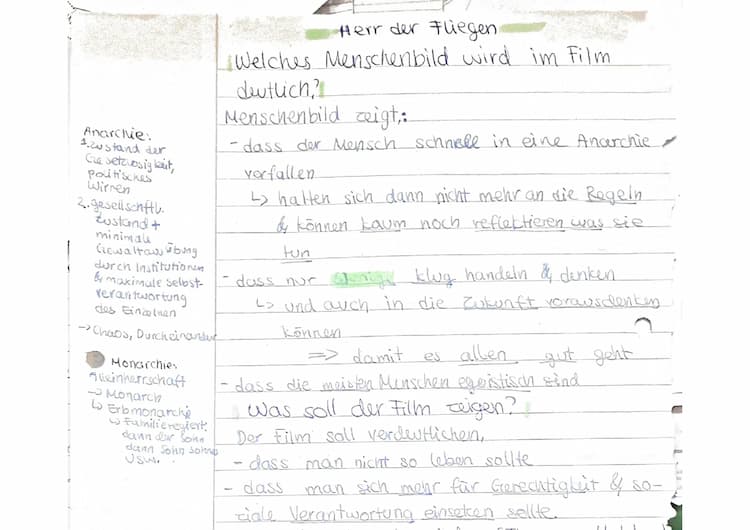 Herr der Fliegen
Welches Menschenbild wird im Film
deutlich?
Menschenbild zeigt,:
- dass der Mensch schnell in eine Anarchie
verfallen
↳ halten sich dann nicht mehr an die Regeln
& können kaum noch reflektieren was sie
tun
- dass nur wenige klug handeln & denken
↳ und auch in die Zukunft vorausdenken
können
=> damit es allen gut geht
- dass die meisten Menschen egoistisch sind
Was soll der Film zeigen?
Der Film soll verdeutlichen,
- dass man nicht so leben sollte
- dass man sich mehr für Gerechtigkeit & so-
ziale Verantwortung einsetzen sollte.
Anarchie:
1. Zustand der
Gesetzlosigkeit,
politisches
Wirren
2. gesellschftl.
Zustand +
minimale
Gewaltausübung
durch Institutionen
& maximale Selbst-
verantwortung
des Einzelnen
-> Chaos, Durcheinander
Monarchie:
Alleinherrschaft
-> Monarch
↳ Erbmonarchie
↳ Familie regiert
dann der Sohn
dann Sohn sohn
usw.